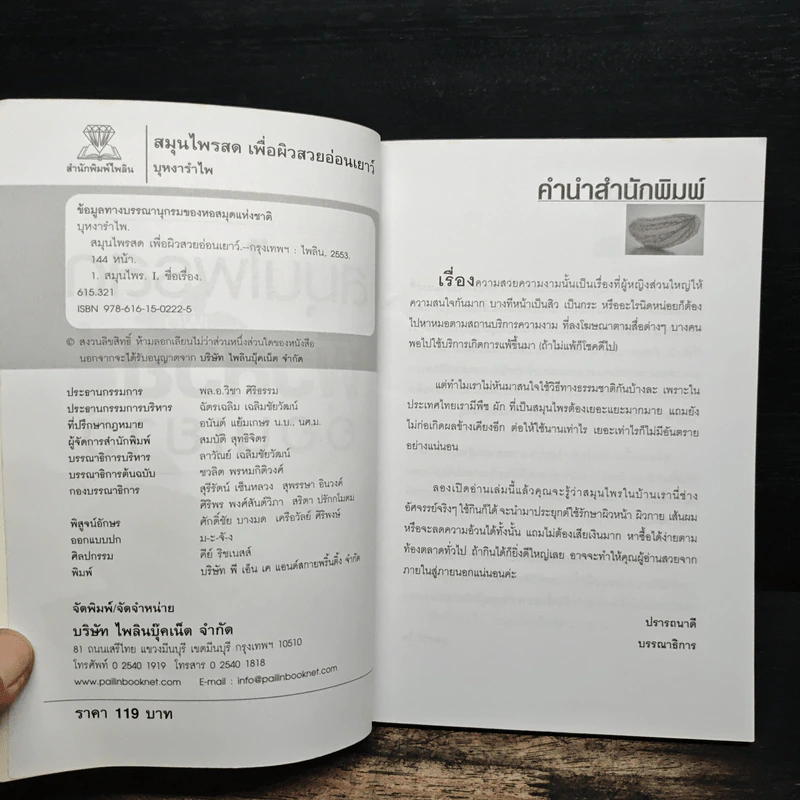 สำนักพิมพ์ไพลิน
สมุนไพรสด เพื่อผิวสวยอ่อนเยาว์
บุหงารำไพ
ข้อมูลทางบรรณานุกรมของหอสมุดแห่งชาติ
บุหงารำไพ.
สมุนไพรสด เพื่อผิวสวยอ่อนเยาว์.--กรุงเทพฯ : ไพลิน, 2553.
144 หน้า.
1. สมุนไพร. I. ชื่อเรื่อง.
615.321
ISBN 978-616-15-0222-5
© สงวนลิขสิทธิ์ ห้ามลอกเลียนไม่ว่าส่วนหนึ่งส่วนใดของหนังสือ
นอกจากจะได้รับอนุญาตจาก บริษัท ไพลินบุ๊คเน็ต จำกัด
ประธานกรรมการ พล.อ.วิชา ศิริธรรม
ประธานกรรมการบริหาร ฉัตรเฉลิม เฉลิมชัยวัฒน์
ที่ปรึกษากฎหมาย อนันต์ แย้มเกษร น.บ., นศ.ม.
ผู้จัดการสำนักพิมพ์ สมบัติ สุทธิจิตร
บรรณาธิการบริหาร ลาวัณย์ เฉลิมชัยวัฒน์
บรรณาธิการต้นฉบับ ชวลิต พรหมกิติวงศ์
กองบรรณาธิการ สุรีรัตน์ เซ็นหลวง สุพรรษา อินวงค์
ศิริพร พงศ์สันต์วิภา สริตา ปรักกโมดม
พิสูจน์อักษร ศักดิ์ชัย บางมด เครือวัลย์ ศิริพงษ์
ออกแบบปก ม-ะ-จ๊-ง
ศิลปกรรม คีย์ ริชเนสส์
พิมพ์ บริษัท พี เอ็น เค แอนด์สกายพริ้นติ้ง จำกัด
จัดพิมพ์/จัดจำหน่าย
บริษัท ไพลินบุ๊คเน็ต จำกัด
81 ถนนเสรีไทย แขวงมีนบุรี เขตมีนบุรี กรุงเทพฯ 10510
โทรศัพท์ 0 2540 1919 โทรสาร 0 2540 1818
www.pailinbooknet.com E-mail : info@pailinbooknet.com
ราคา 119 บาท
คำนำสำนักพิมพ์
เรื่องความสวยความงามนั้นเป็นเรื่องที่ผู้หญิงส่วนใหญ่ให้
ความสนใจกันมาก บางทีหน้าเป็นสิว เป็นกระ หรืออะไรนิดหน่อยก็ต้อง
ไปหาหมอตามสถานบริการความงาม ที่ลงโฆษณาตามสื่อต่างๆ บางคน
พอไปใช้บริการเกิดการแพ้ขึ้นมา (ถ้าไม่แพ้ก็โชคดีไป)
แต่ทำไมเราไม่หันมาสนใจใช้วิธีทางธรรมชาติกันบ้างละ เพราะใน
ประเทศไทยเรามีพืช ผัก ที่เป็นสมุนไพรต้องเยอะแยะมากมาย แถมยัง
ไม่ก่อเกิดผลข้างเคียงอีก ต่อให้ใช้นานเท่าไร เยอะเท่าไรก็ไม่มีอันตราย
อย่างแน่นอน
ลองเปิดอ่านเล่มนี้แล้วคุณจะรู้ว่าสมุนไพรในบ้านเรานี่ช่าง
อัศจรรย์จริงๆ ใช้กินก็ได้ จะนำมาประยุกต์ใช้รักษาผิวหน้า ผิวกาย เส้นผม
หรือจะลดความอ้วนได้ทั้งนั้น แถมไม่ต้องเสียเงินมาก หาซื้อได้ง่ายตาม
ท้องตลาดทั่วไป ถ้ากินได้ก็ยิ่งดีใหญ่เลย อาจจะทำให้คุณผู้อ่านสวยจาก
ภายในสู่ภายนอกแน่นอนค่ะ
ปรารถนาดี
บรรณาธิการ